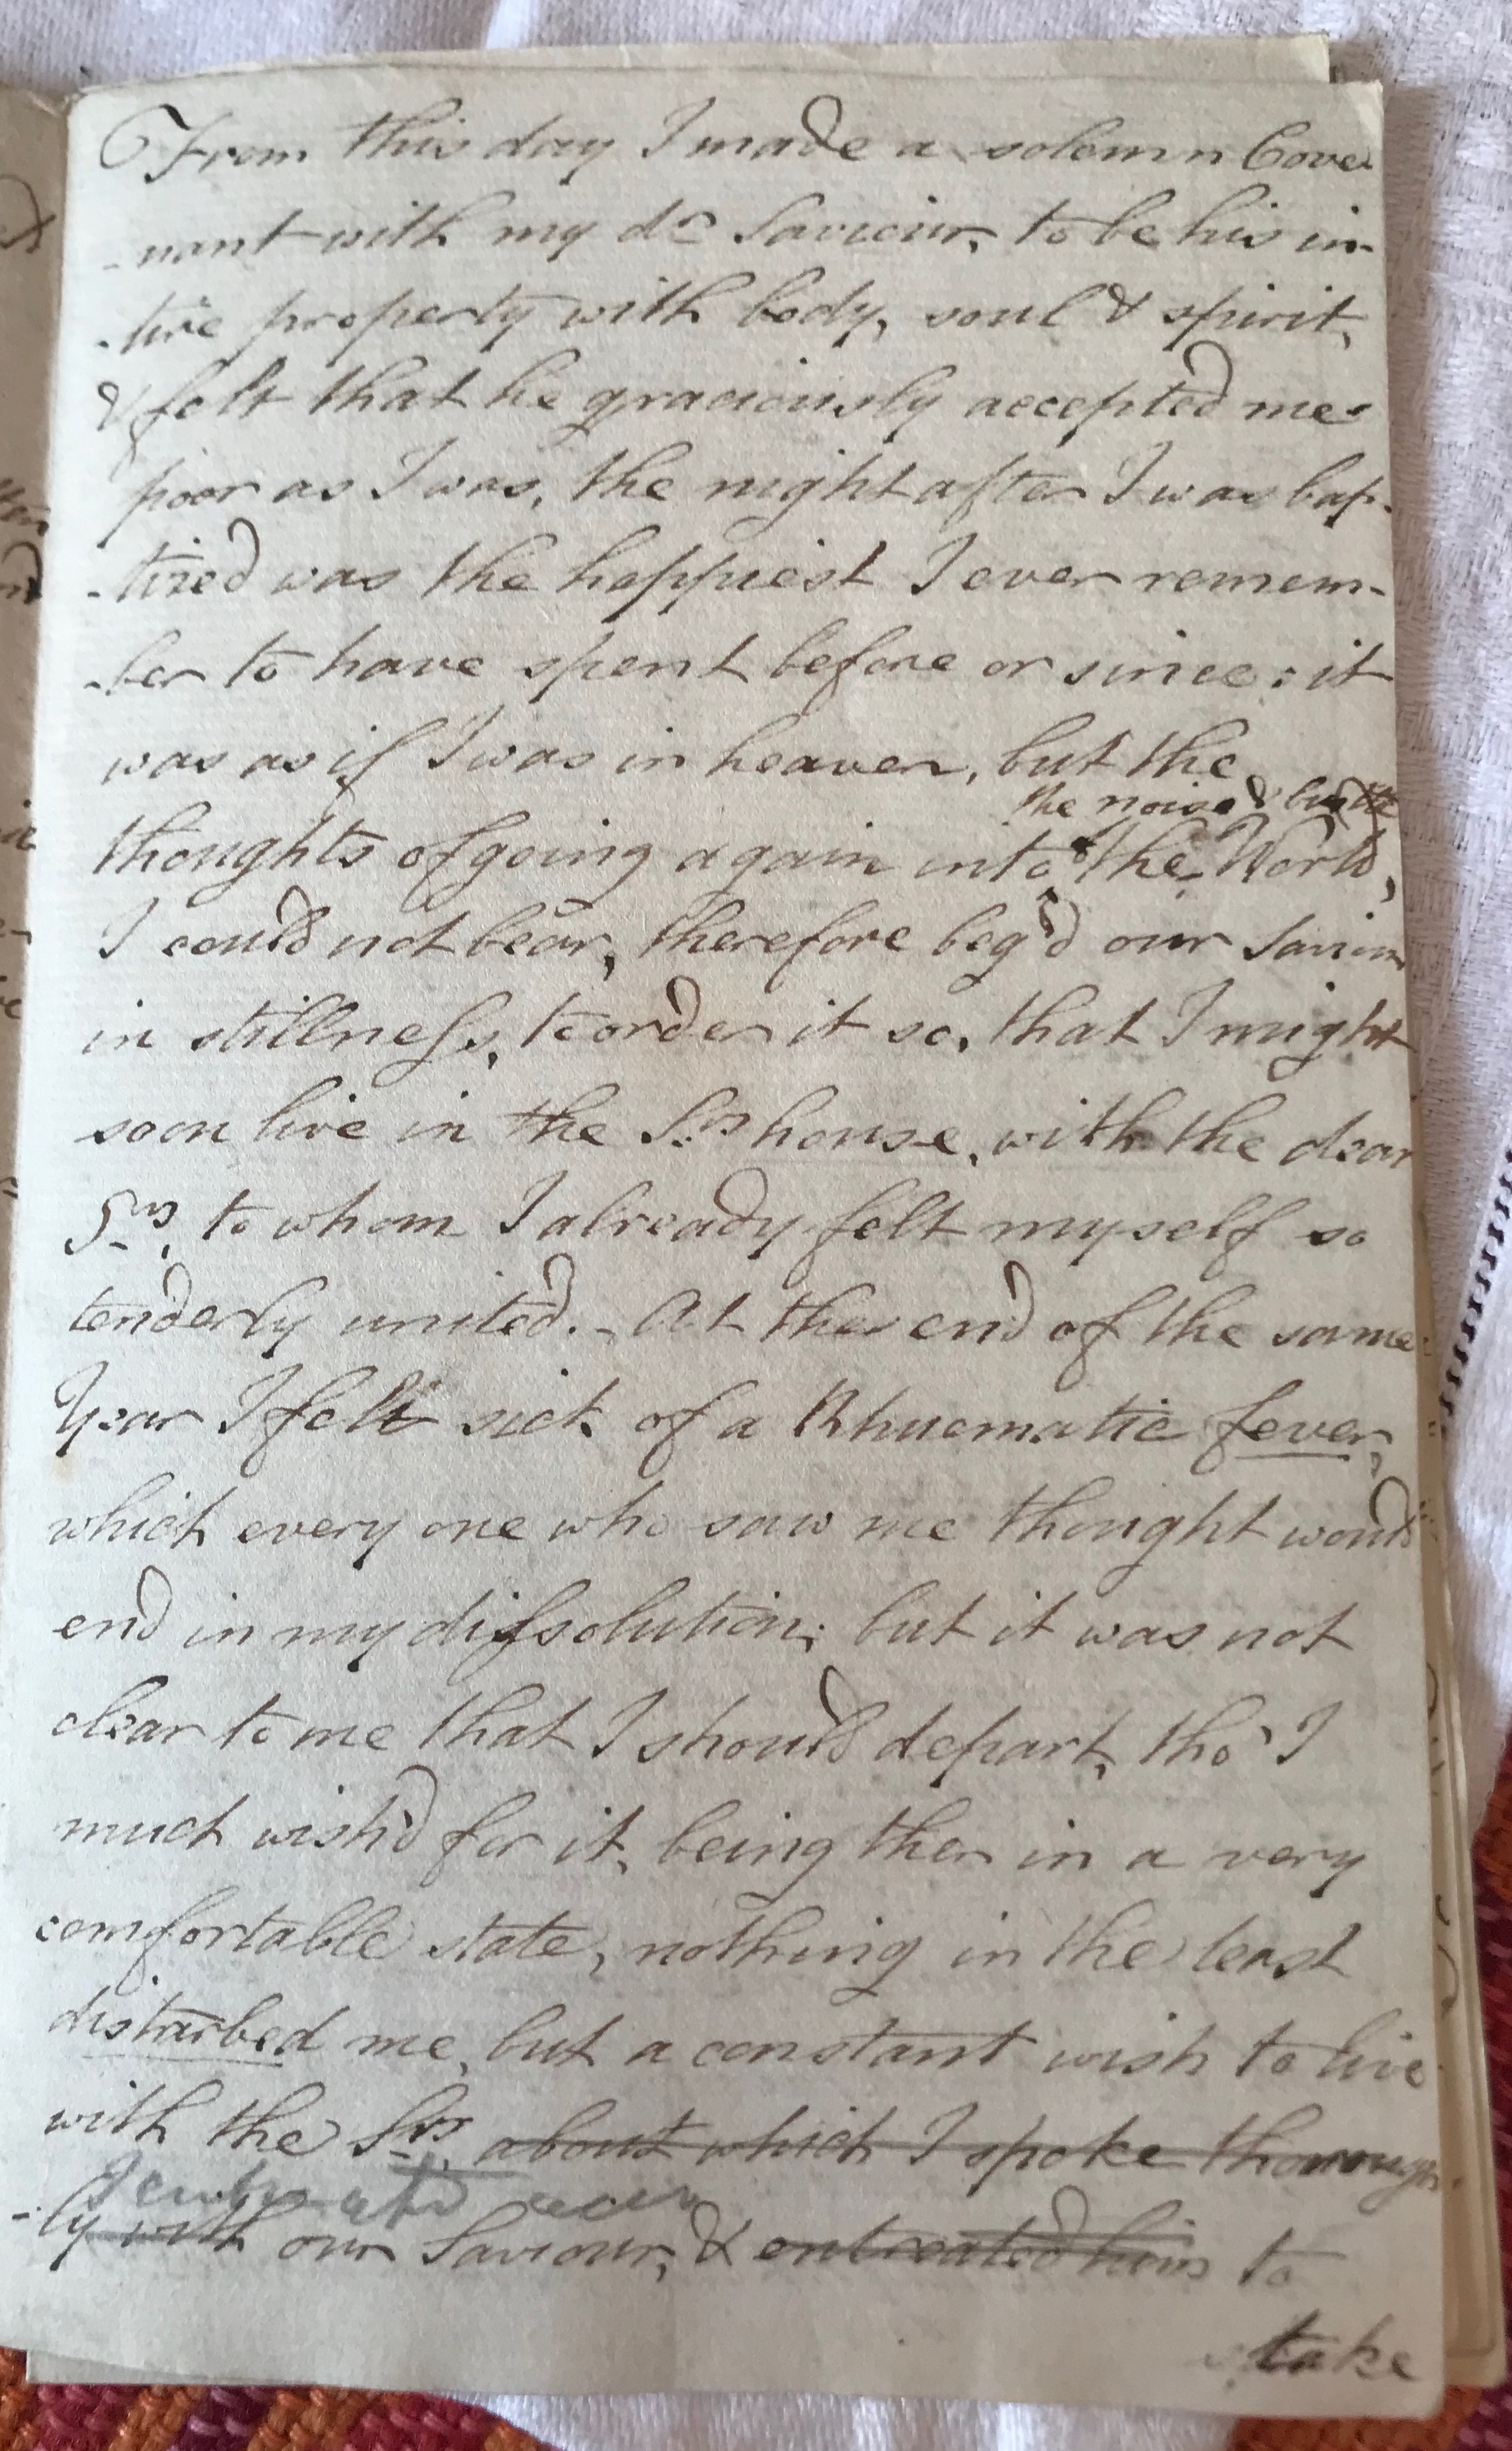 From this day I made a solemn Cove
-nant with my dr Saviour, to be his in-
-tire property with body, soul & spirit,
& felt that he graciously accepted me
poor as I was, the night after I was bap-
-tized was the happiest I ever remem-
-ber to have spent before or since: it
was as if I was in heaven, but the
the noise & bustle
thoughts of going again into the World,
I could not bear, therefore beg'd our Saviour
in stillness, to order it so, that I might
soon live in the Srs house, with the dear
Srs, to whom I already felt myself so
tenderly united. - At the end of the same
Year I felt sick of a Rhuematic fever,
which every one who saw me thought would
end in my dissolution; but it was not
clear to me that I should depart, tho' I
much wish'd for it, being then in a very
comfortable state, nothing in the least
disturbed me, but a constant wish to live
with the Srs. about which I spoke thorough
-ly with our Saviour, & entreated him to
take